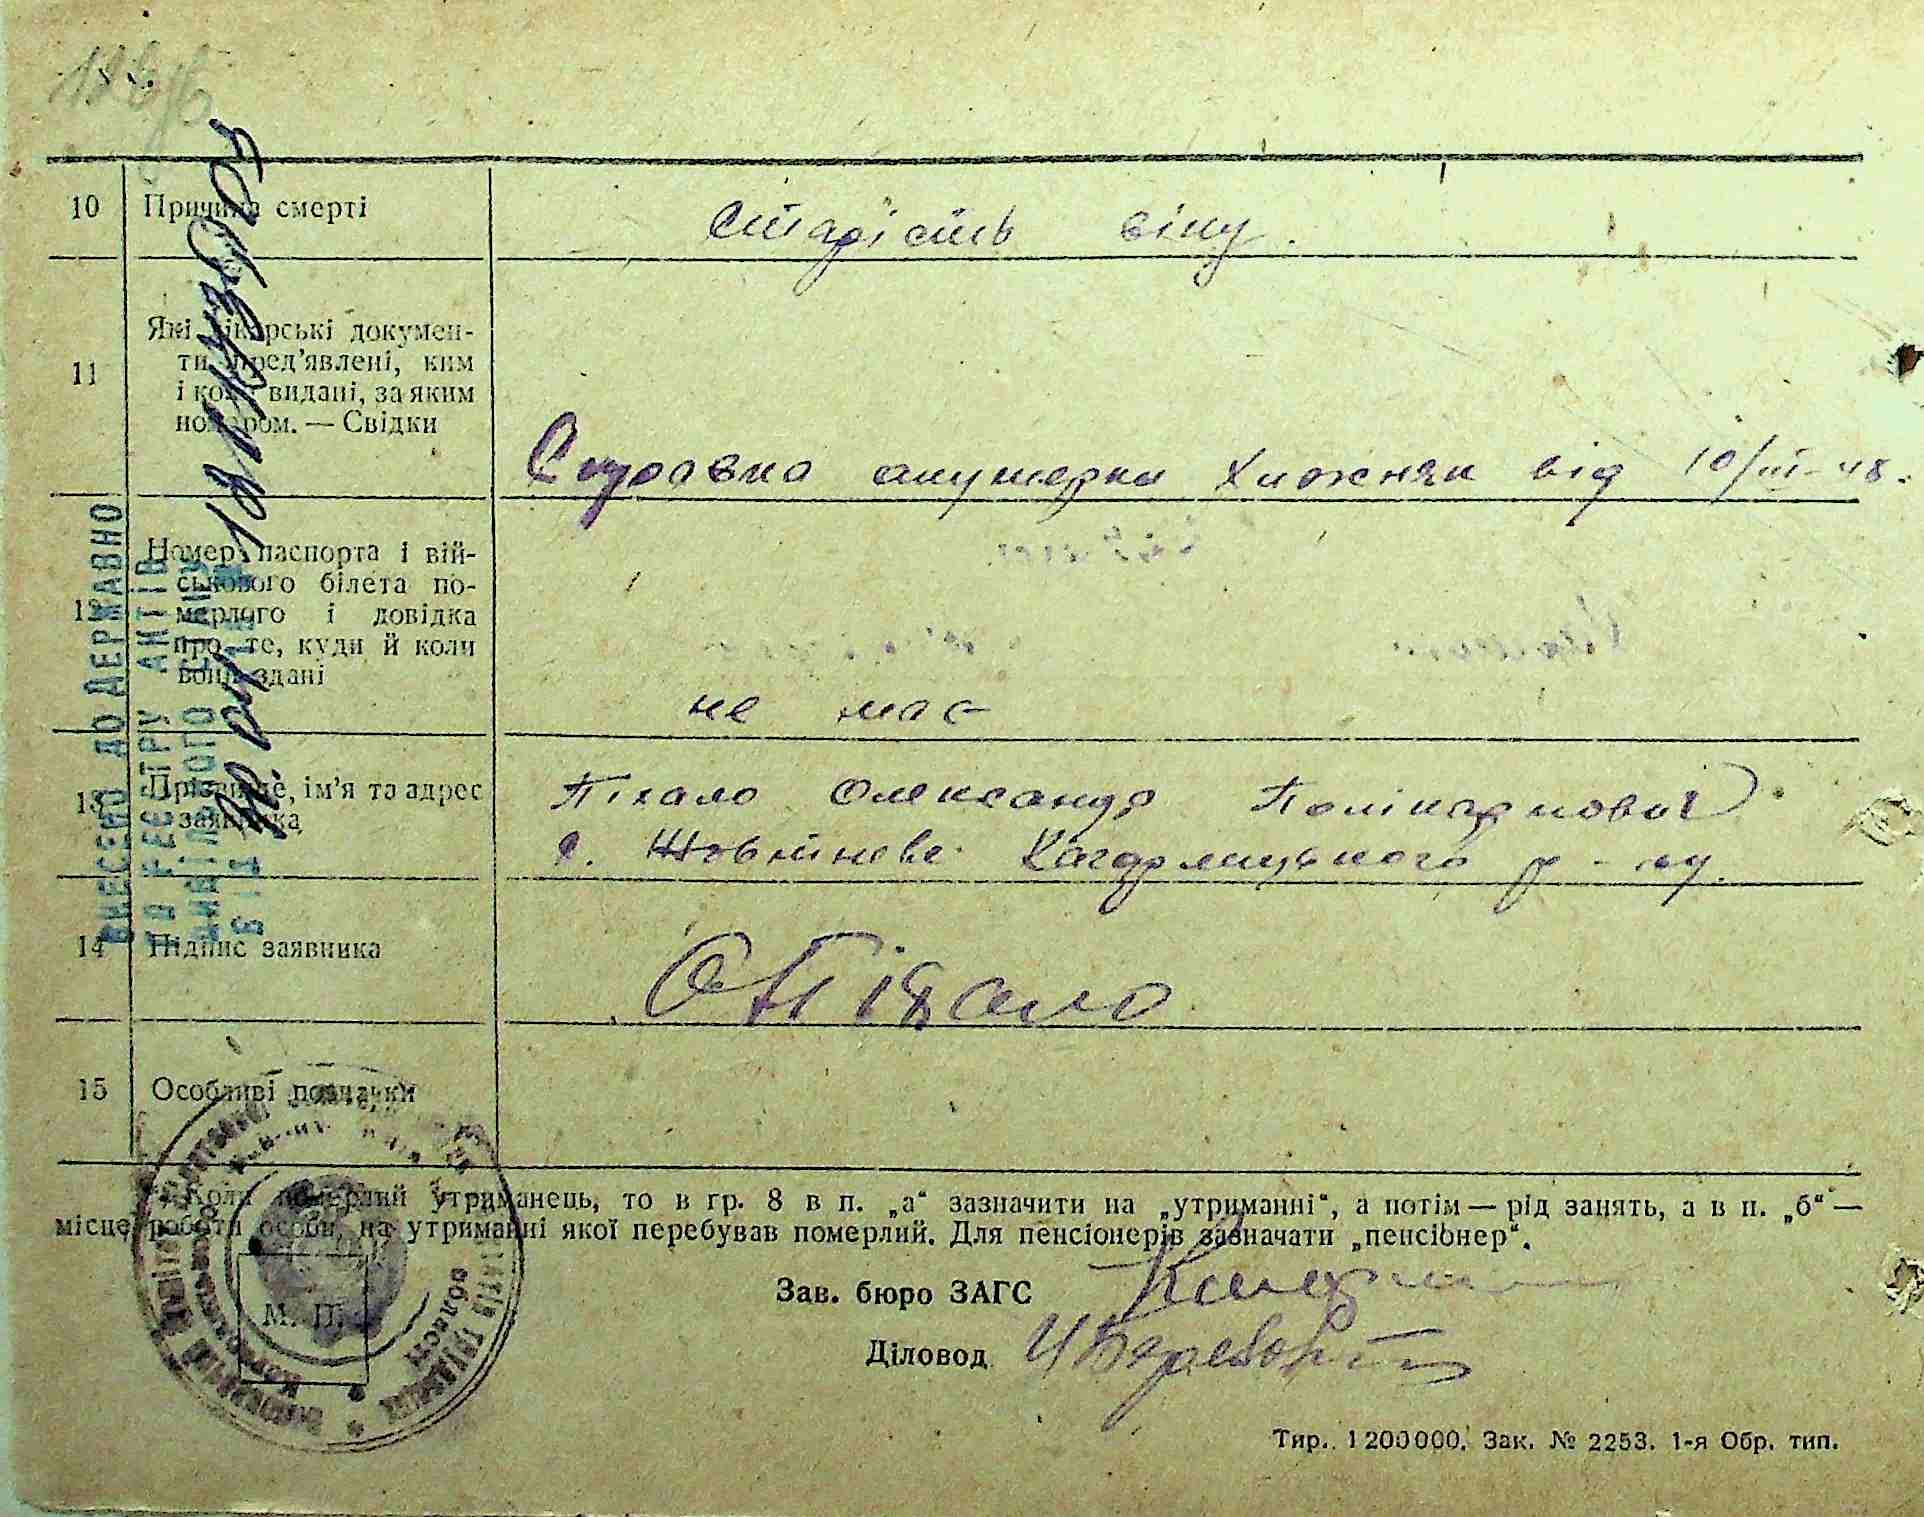 10 Причина смерті
старість віку.
11 Які лікарські докумен-
ти пред'явлені, ким
і коли видані, за яким
номером. — Свідки
Справка акушерки Хижняк від 10/III-48.
12 Номер паспорта і вій-
ськового білета по-
мерлого і довідка
про те, куди й коли
вони здані
не має
13 Прізвище, ім'я та адрес
заявника
Піхало Олександр Полікарпович
с. Жовтневе Кагарлицького р-ну.
14 Підпис заявника
О Піхало
15 Особливі позначки
ВНЕСЕНО ДО ДЕРЖАВНО
ГО РЕЄСТРУ АКТІВ
ЦИВІЛЬНОГО СТАНУ
ВІД
Коли померлий утриманець, то в гр. 8 в п. „а“ зазначити на „утриманні“, а потім — рід занять, а в п. „б“ —
місце роботи особи, на утриманні якої перебував померлий. Для пенсіонерів зазначати „пенсіонер“.
М. П.
Зав. бюро ЗАГС
Діловод
Тир. 1200000. Зак. № 2253. 1-я Обр. тип.